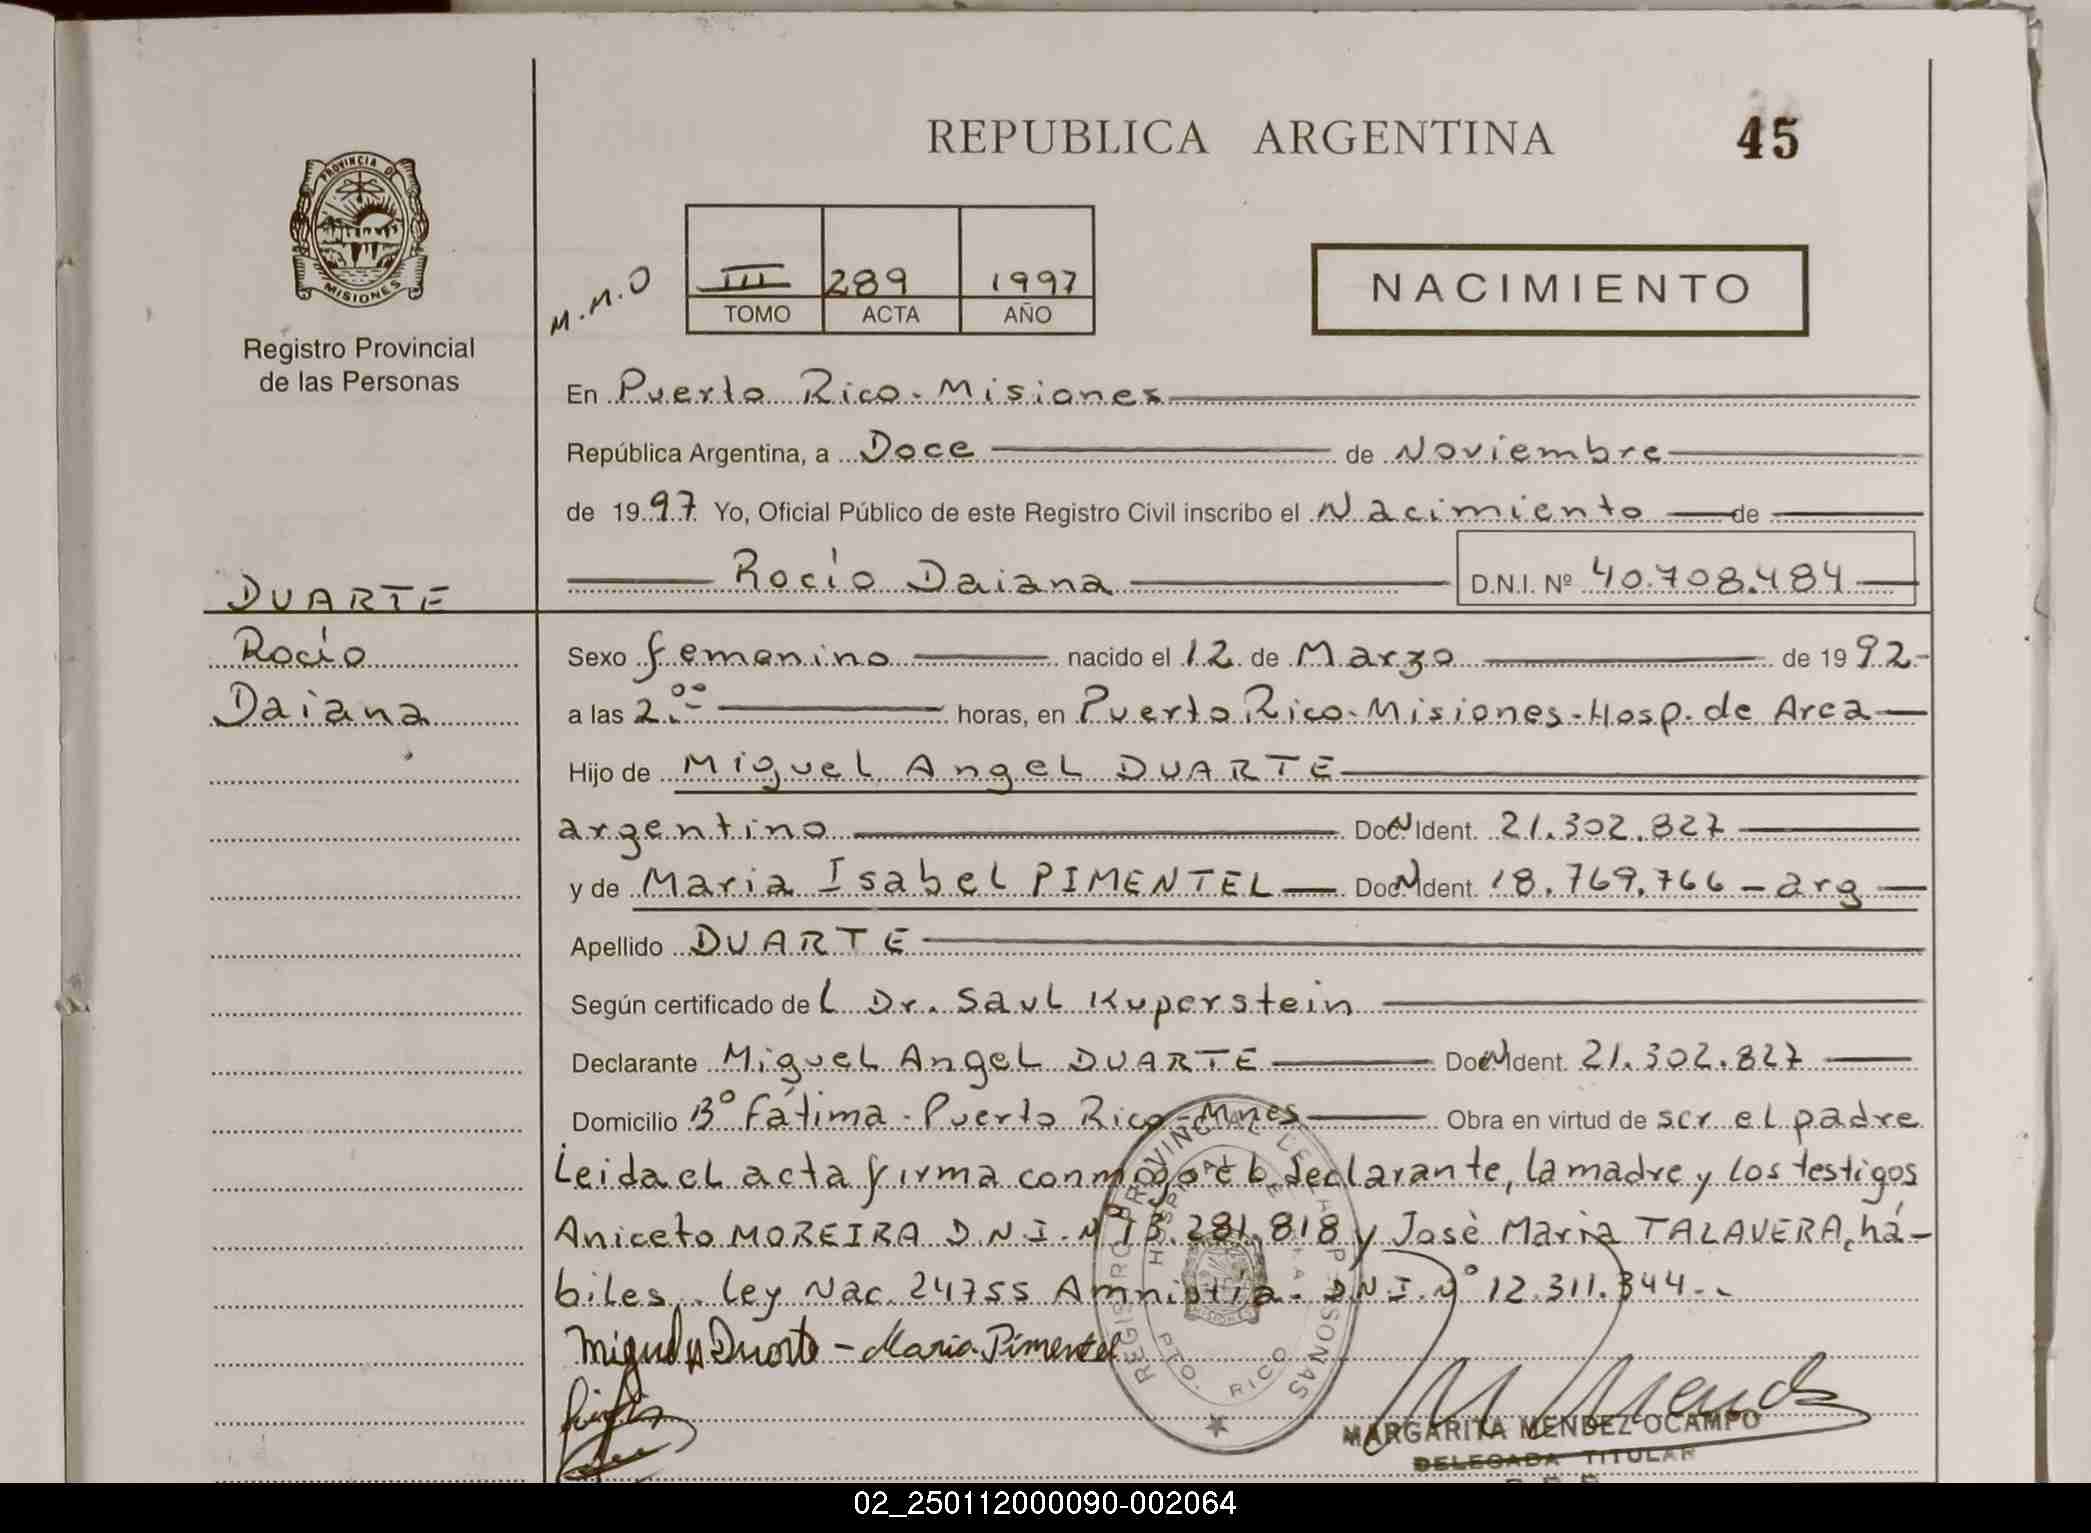 REPUBLICA ARGENTINA
45
PROVINCIA DE
MISIONES
Registro Provincial
de las Personas
M.M.O
III 289 1997
TOMO ACTA AÑO
NACIMIENTO
En Puerto Rico - Misiones
República Argentina, a Doce de Noviembre
de 1997 Yo, Oficial Público de este Registro Civil inscribo el Nacimiento de
Rocío Daiana D.N.I. Nº 40.708.484
DUARTE
Rocío
Daiana
Sexo femenino nacido el 12 de Marzo de 1992-
a las 2.00 horas, en Puerto Rico - Misiones - Hosp. de Area
Hijo de Miguel Angel DUARTE
argentino Doc. N Ident. 21.302.827
y de Maria Isabel PIMENTEL Doc. N Ident. 18.769.766 - arg
Apellido DUARTE
Según certificado de l Dr. Saul Kuperstein
Declarante Miguel Angel DUARTE Doc. N Ident. 21.302.827
Domicilio Bº Fátima - Puerto Rico - Mnes Obra en virtud de ser el padre
Leida el acta firma conmigo el declarante, la madre y los testigos
Aniceto MOREIRA D.N.I. Nº 13.281.818 y José Maria TALAVERA, há-
biles. Ley Nac. 24755 Amnistia. D.N.I. Nº 12.311.344.-
Miguel A Duarte - Maria Pimentel
REGISTRO PROVINCIAL DE LAS PERSONAS
HOSPITAL DE AREA
PTO. RICO
MARGARITA MENDEZ OCAMPO
DELEGADA TITULAR
02_250112000090-002064